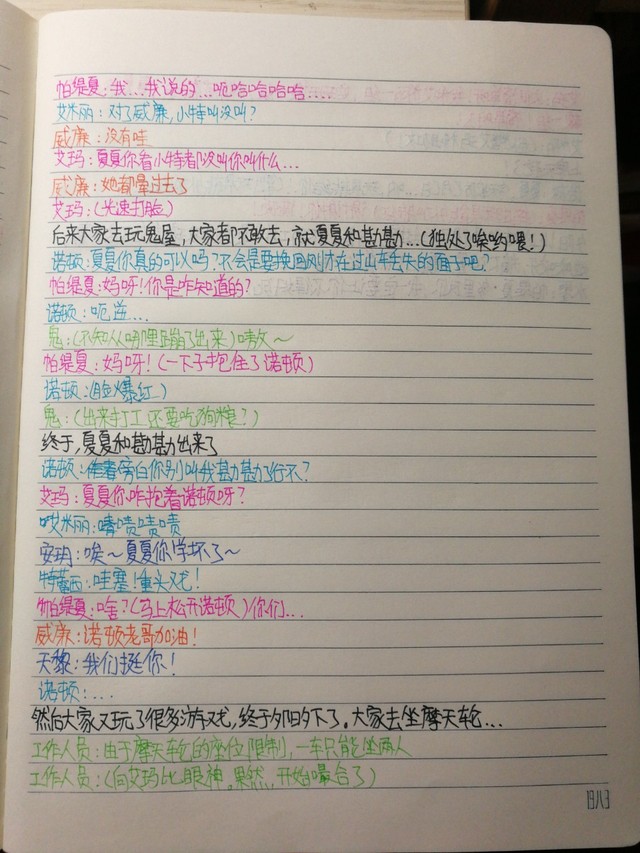 帕缇夏：我…我说的…呃哈哈哈哈……
艾米丽：对了威廉，小特叫没叫？
威廉：没有哇
艾玛：夏夏你看小特都没叫你叫什么…
威廉：她都晕过去了
艾玛：(光速打脸)
后来大家去玩鬼屋，大家都不敢去，就夏夏和勘勘…(独处了唉哟喂！)
诺顿：夏夏你真的可以吗？不会是要挽回刚才在过山车丢失的面子吧？
帕缇夏：妈呀！你是咋知道的？
诺顿：呃这…
鬼：(不知从哪里蹦了出来)嗷～
帕缇夏：妈呀！(一下子抱住了诺顿)
诺顿：(脸爆红)
鬼：(出来打工还要吃狗粮？)
终于，夏夏和勘勘出来了
诺顿：作者旁白你别叫我勘勘了行不？
艾玛：夏夏你咋抱着诺顿呀？
哎米丽：啧啧啧啧
安玥：唉～夏夏你学坏了～
特蕾西：哇塞！重头戏！
帕缇夏：啥？(马上松开诺顿)你们…
威廉：诺顿老哥加油！
天黎：我们挺你！
诺顿：…
然后大家又玩了很多游戏，终于夕阳夕下了。大家去坐摩天轮…
工作人员：由于摩天轮的座位限制，一车只能坐两人
工作人员：(向艾玛比眼神，果然，开始嘬合了)